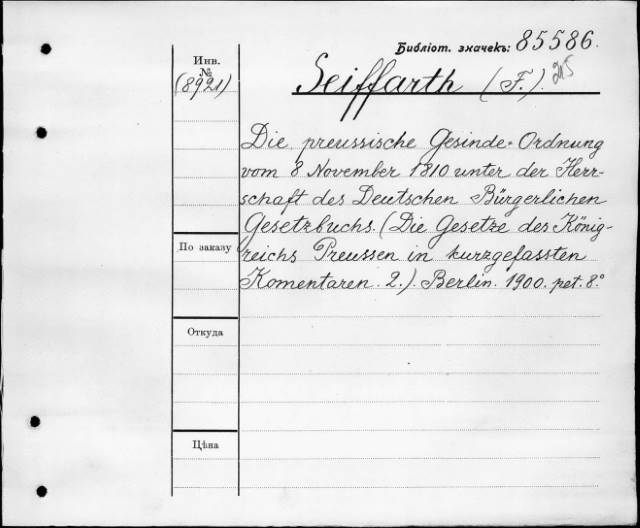 Библіот. значекъ: 85586.
Инв.
№
(8921)
Seiffarth (F.). 215
Die preussische Gesinde-Ordnung
vom 8 November 1810 unter der Herr-
schaft des Deutschen Bürgerlichen
Gesetzbuchs. (Die Gesetze des König-
reichs Preussen in kurzgefassten
Komentaren. 2.). Berlin. 1900. pet. 8.º
По заказу
Откуда
Цѣна